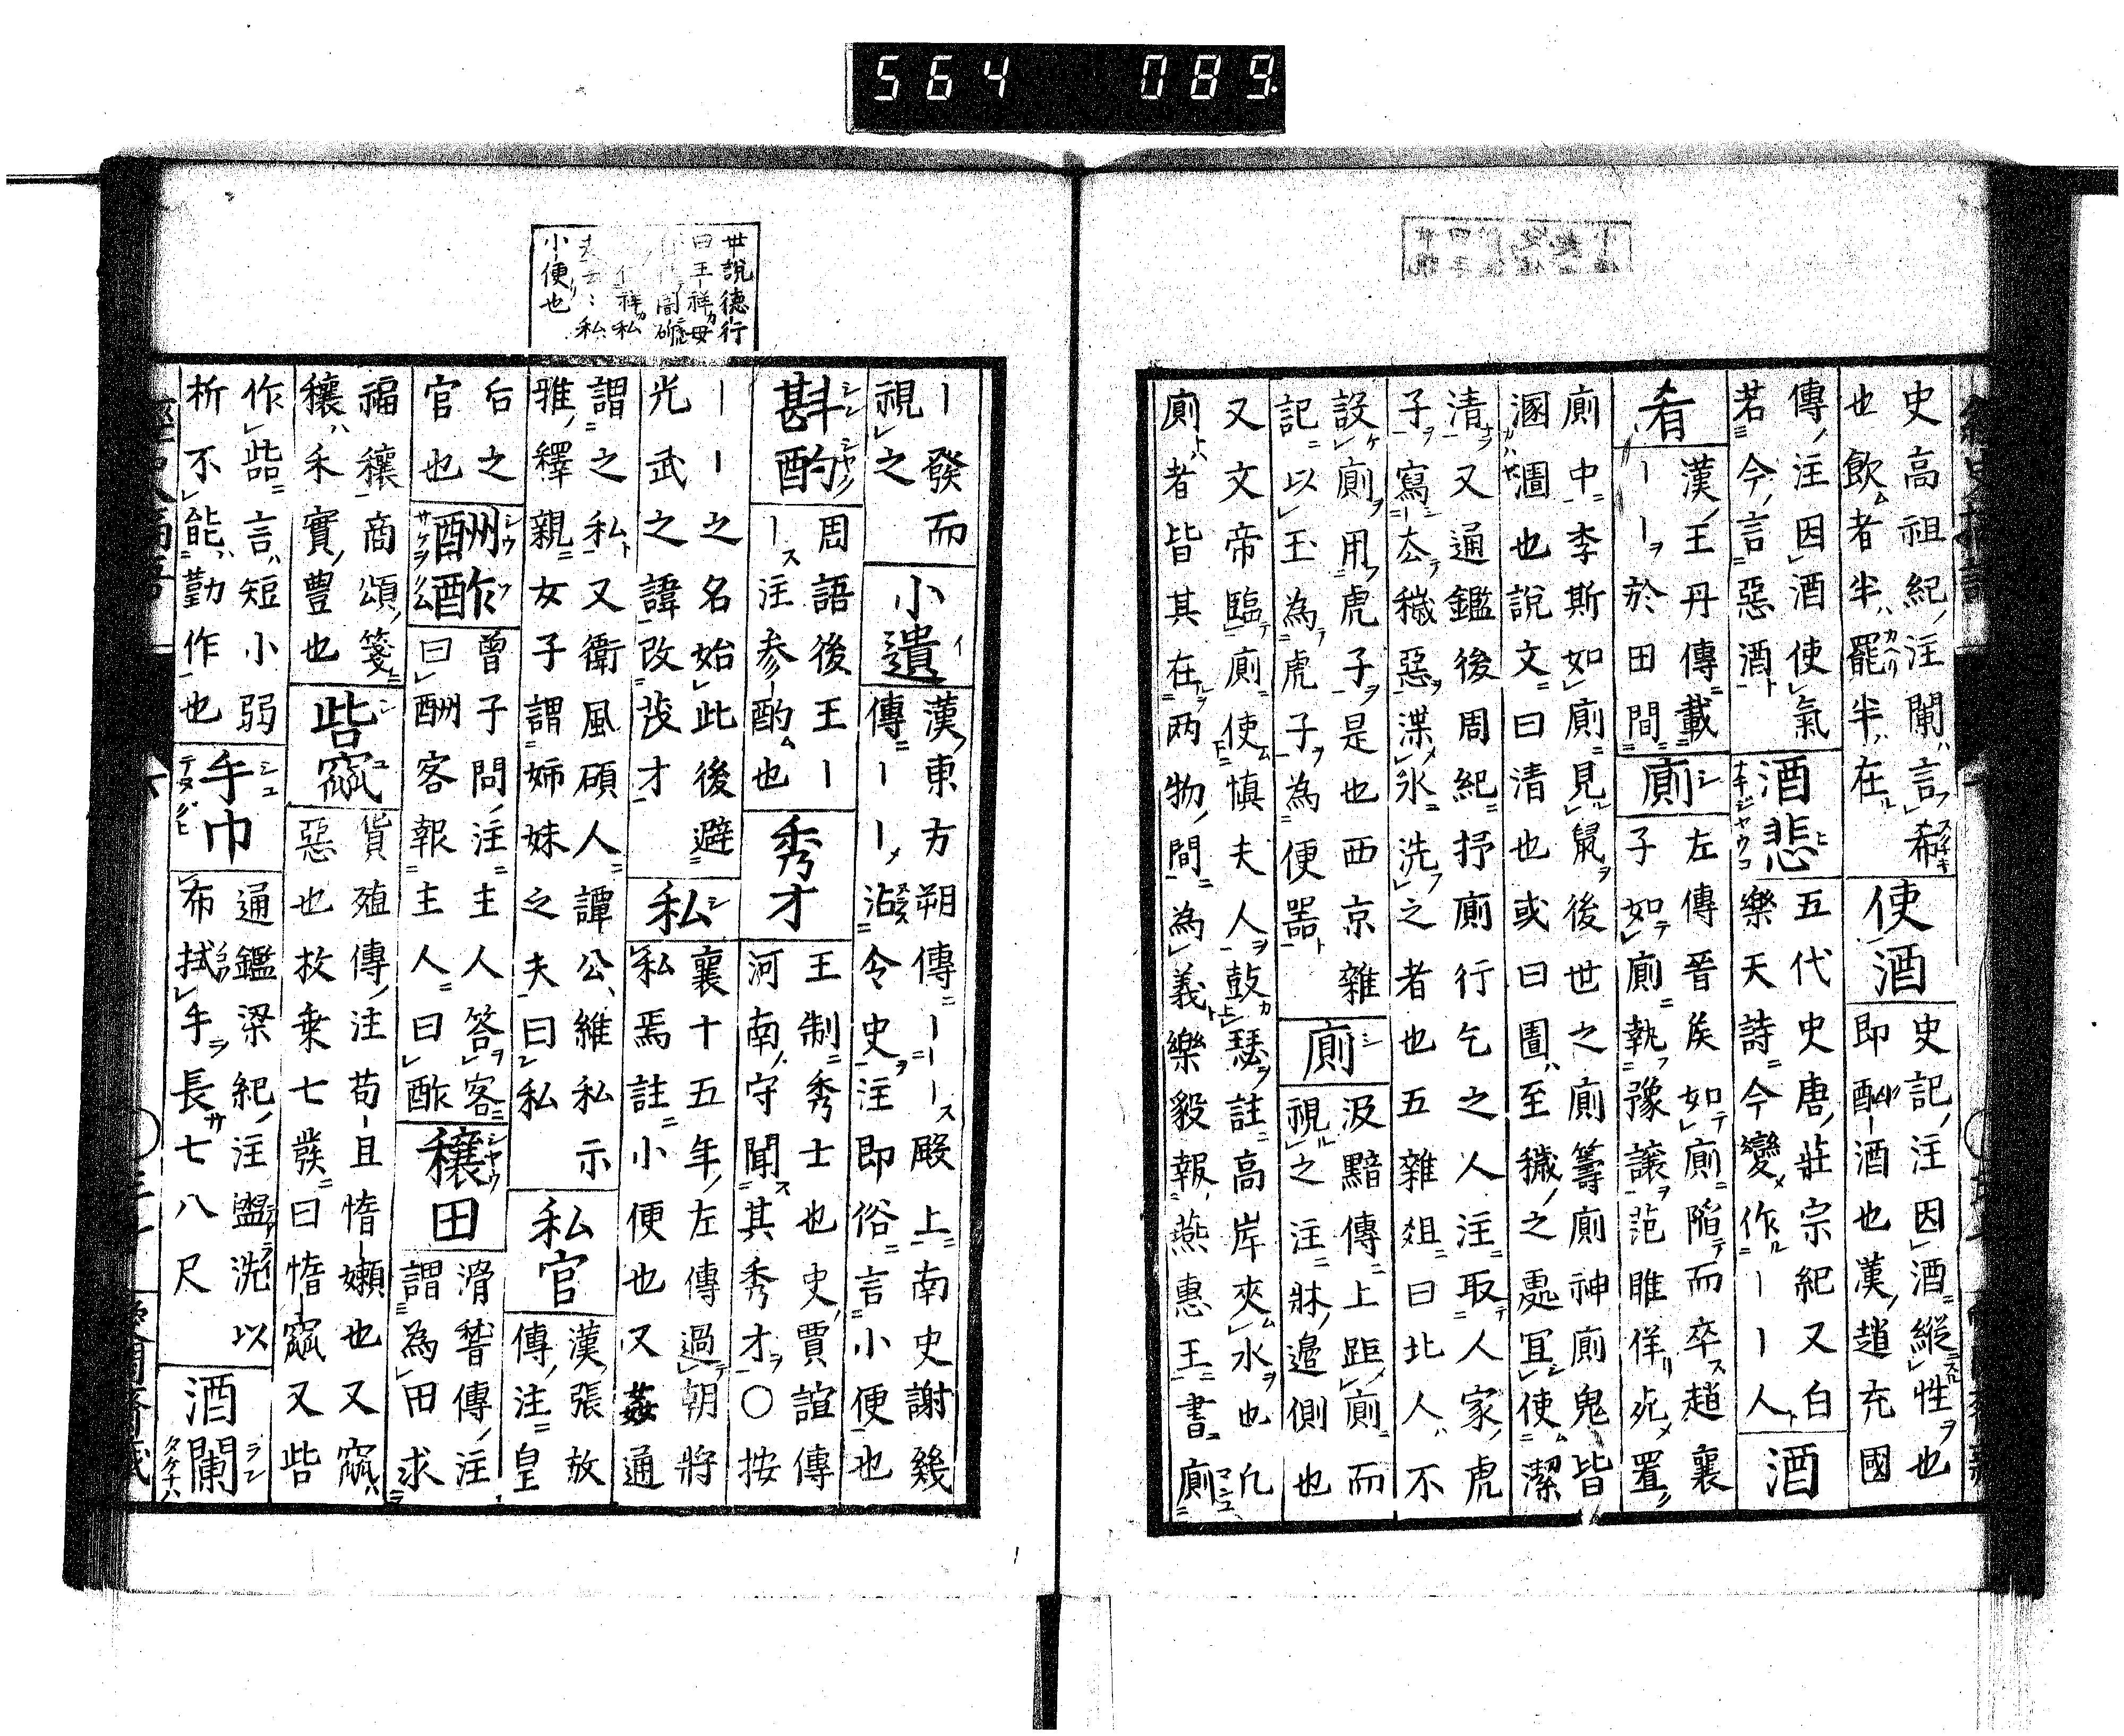 564 089
史高祖紀注闌言希
也飲者半罷半在
使酒
史記注因酒縦性也
即酗酒也漢趙充國
傳注因酒使氣
若今言惡酒
酒悲
五代史唐莊宗紀又白
樂天詩今變作ーー人
酒
肴
漢王丹傳載
ーー於田間
廁
左傳晉侯如廁陷而卒趙襄
子如廁執豫讓范雎佯死置
廁中李斯如廁見鼠後世之廁籌廁神廁鬼皆
溷溷也説文曰清也或曰圊至穢之處宜使潔
清又通鑑後周紀抒廁行乞之人注取人家虎
子寫去穢惡渫氷洗之者也五雜爼曰北人不
設廁用虎子是也西京雜
記以玉為虎子為便器
廁
汲黯傳上距廁而
視之注牀邉側也
又文帝臨廁使慎夫人鼓瑟註高岸夾水也凢
廁者皆其在两物間為義樂毅報燕惠王書廁
世説德行
曰王祥母
間斫
祥私
私
小便也
ー發而
視之
小遺
漢東方朔傳ーー殿上南史謝幾
傳ーー沾令史注即俗言小便也
斟酌
周語後王ー
ー注参酌也
秀才
王制秀士也史賈誼傳
河南守聞其秀才〇按
ーー之名始此後避
光武之諱改茂才
私
襄十五年左傳過朝將
私焉註小便也又姦通
謂之私又衛風碩人譚公維私示
雅釋親女子謂姉妹之夫曰私
私官
漢張放
傳注皇
后之
官也
酬酢
曾子問注主人答客
曰酬客報主人曰酢
穰田
滑稽傳注
謂為田求
福穰商頌箋
穰禾實豊也
呰窳
貨殖傳注苟且惰嬾也又窳
惡也枚乗七發曰惰窳又呰
作啙言短小弱
枿不能勤作也
手巾
通鑑梁紀注盥洗以
布拭手長七八尺
酒闌